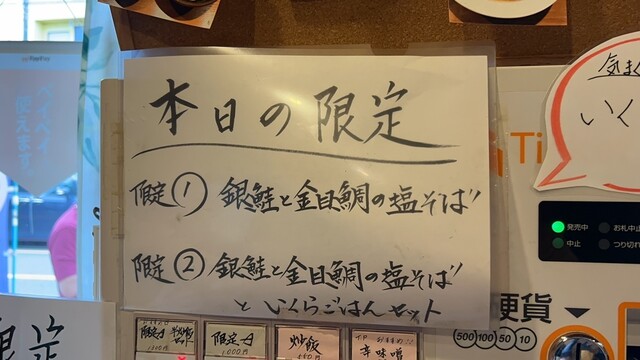 本日の限定
限定① 銀鮭と金目鯛の塩そば
限定② 銀鮭と金目鯛の塩そば
といくらごはんセット
PayPay
ペイペイ
使えます。
気まぐ
いく
Ti
発売中
お札中止
中止
つり切れ
硬貨
500 100 50 10
限定
限定
限定
1,000円
炒飯
辛味噌